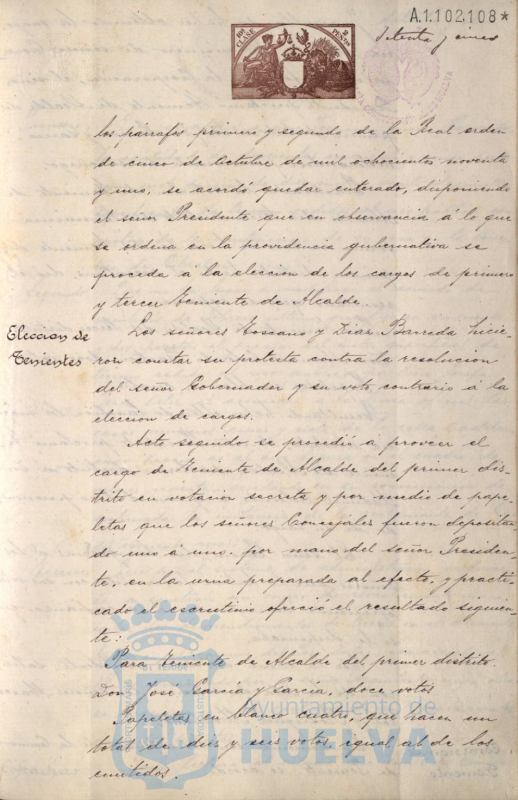 A.1.102.108*
10ª CLASE
2 PESETAS
Setenta y cinco
los párrafos primero y segundo de la Real orden
de cinco de Octubre de mil ochocientos noventa
y uno, se acordó quedar enterado, disponiendo
el señor Presidente que en observancia á lo que
se ordena en la providencia gubernativa se
proceda a la eleccion de los cargos de primero
y tercer Teniente de Alcalde.
Eleccion de
Tenientes
Los señores Toscano y Diaz Barreda hicie-
ron constar su protesta contra la resolucion
del señor Gobernador y su voto contrario á la
eleccion de cargos.
Acto seguido se procedió a proveer el
cargo de Teniente de Alcalde del primer dis-
trito en votacion secreta y por medio de pape-
letas que los señores Concejales fueron deposita-
do uno á uno, por mano del señor Presiden-
te, en la urna preparada al efecto, y practi-
cado el escrutinio ofreció el resultado siguien-
te:
Para Teniente de Alcalde del primer distrito.
Don José García y García, doce votos
Papeletas en blanco cuatro, que hacen un
total de diez y seis votos, igual al de los
emitidos.
Ayuntamiento de
HUELVA